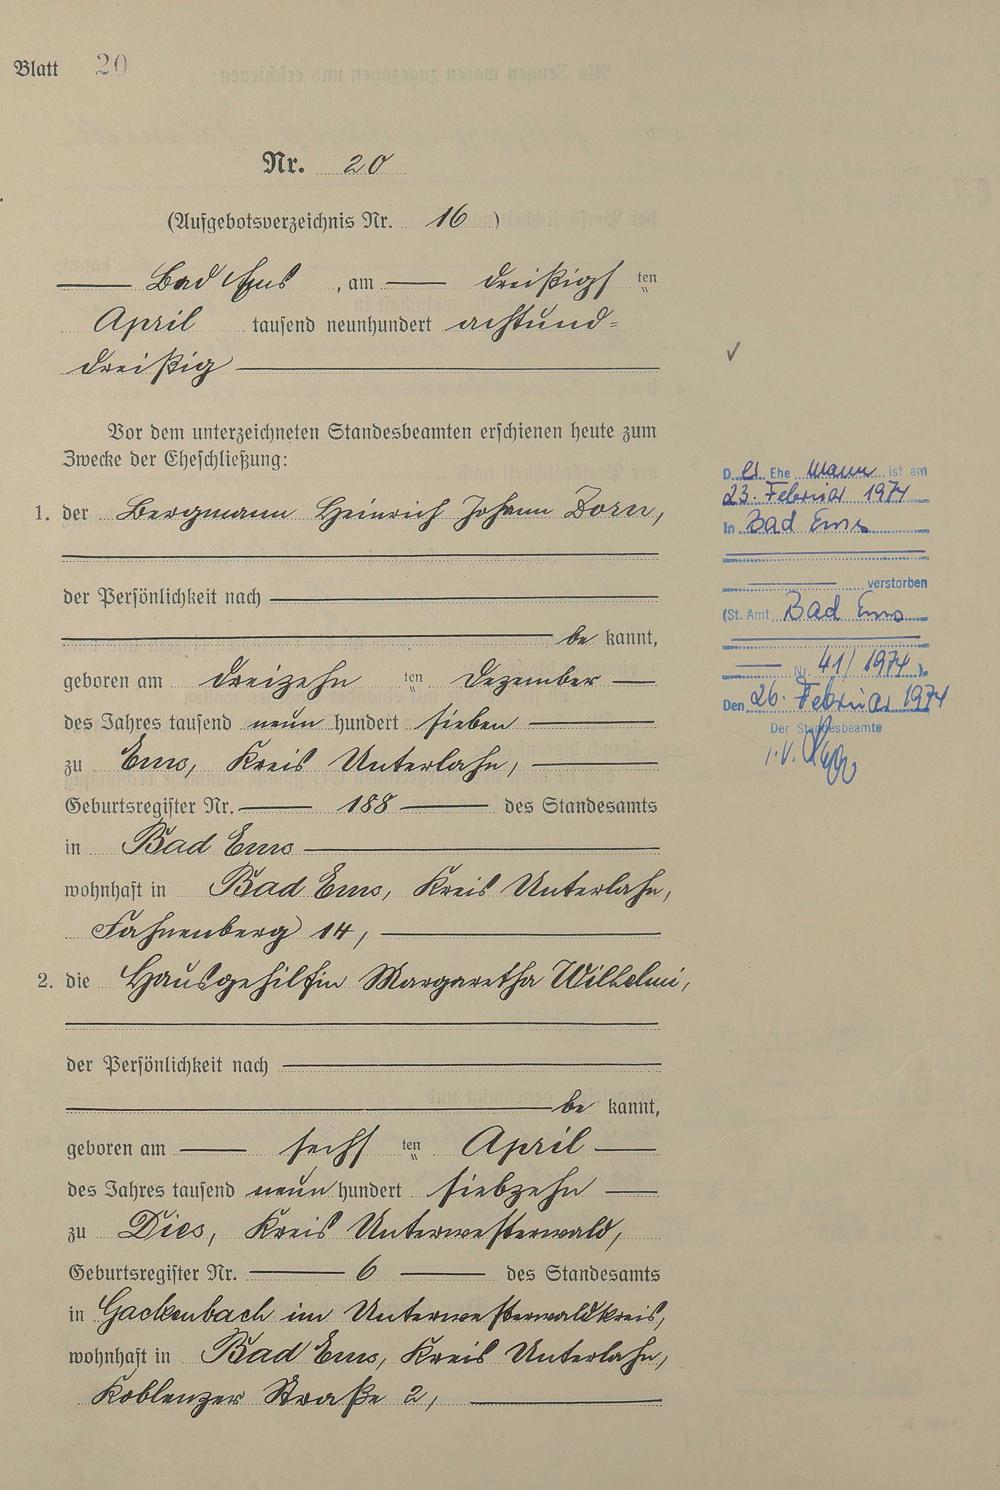 Blatt 20
Nr. 20
(Aufgebotsverzeichnis Nr. 16)
Bad Ems, am dreißigsten
April tausend neunhundert achtund-
dreißig
Vor dem unterzeichneten Standesbeamten erschienen heute zum
Zwecke der Eheschließung:
1. der Bergmann Heinrich Johann Dorn,
der Persönlichkeit nach
bekannt,
geboren am dreizehnten Dezember
des Jahres tausend neunhundert sieben
zu Ems, Kreis Unterlahn,
Geburtsregister Nr. 188 des Standesamts
in Bad Ems
wohnhaft in Bad Ems, Kreis Unterlahn,
Fahnenberg 14,
2. die Hausgehilfin Margaretha Wilhelmi,
der Persönlichkeit nach
bekannt,
geboren am sechsten April
des Jahres tausend neunhundert siebzehn
zu Dies, Kreis Unterwesterwald,
Geburtsregister Nr. 6 des Standesamts
in Gackenbach im Unterwesterwaldkreis,
wohnhaft in Bad Ems, Kreis Unterlahn,
Koblenzer Straße 2,
D. er Ehe Mann ist am
23. Februar 1974
in Bad Ems
verstorben
(St. Amt Bad Ems
Nr. 41/1974).
Den 26. Februar 1974
Der Standesbeamte
i.V.